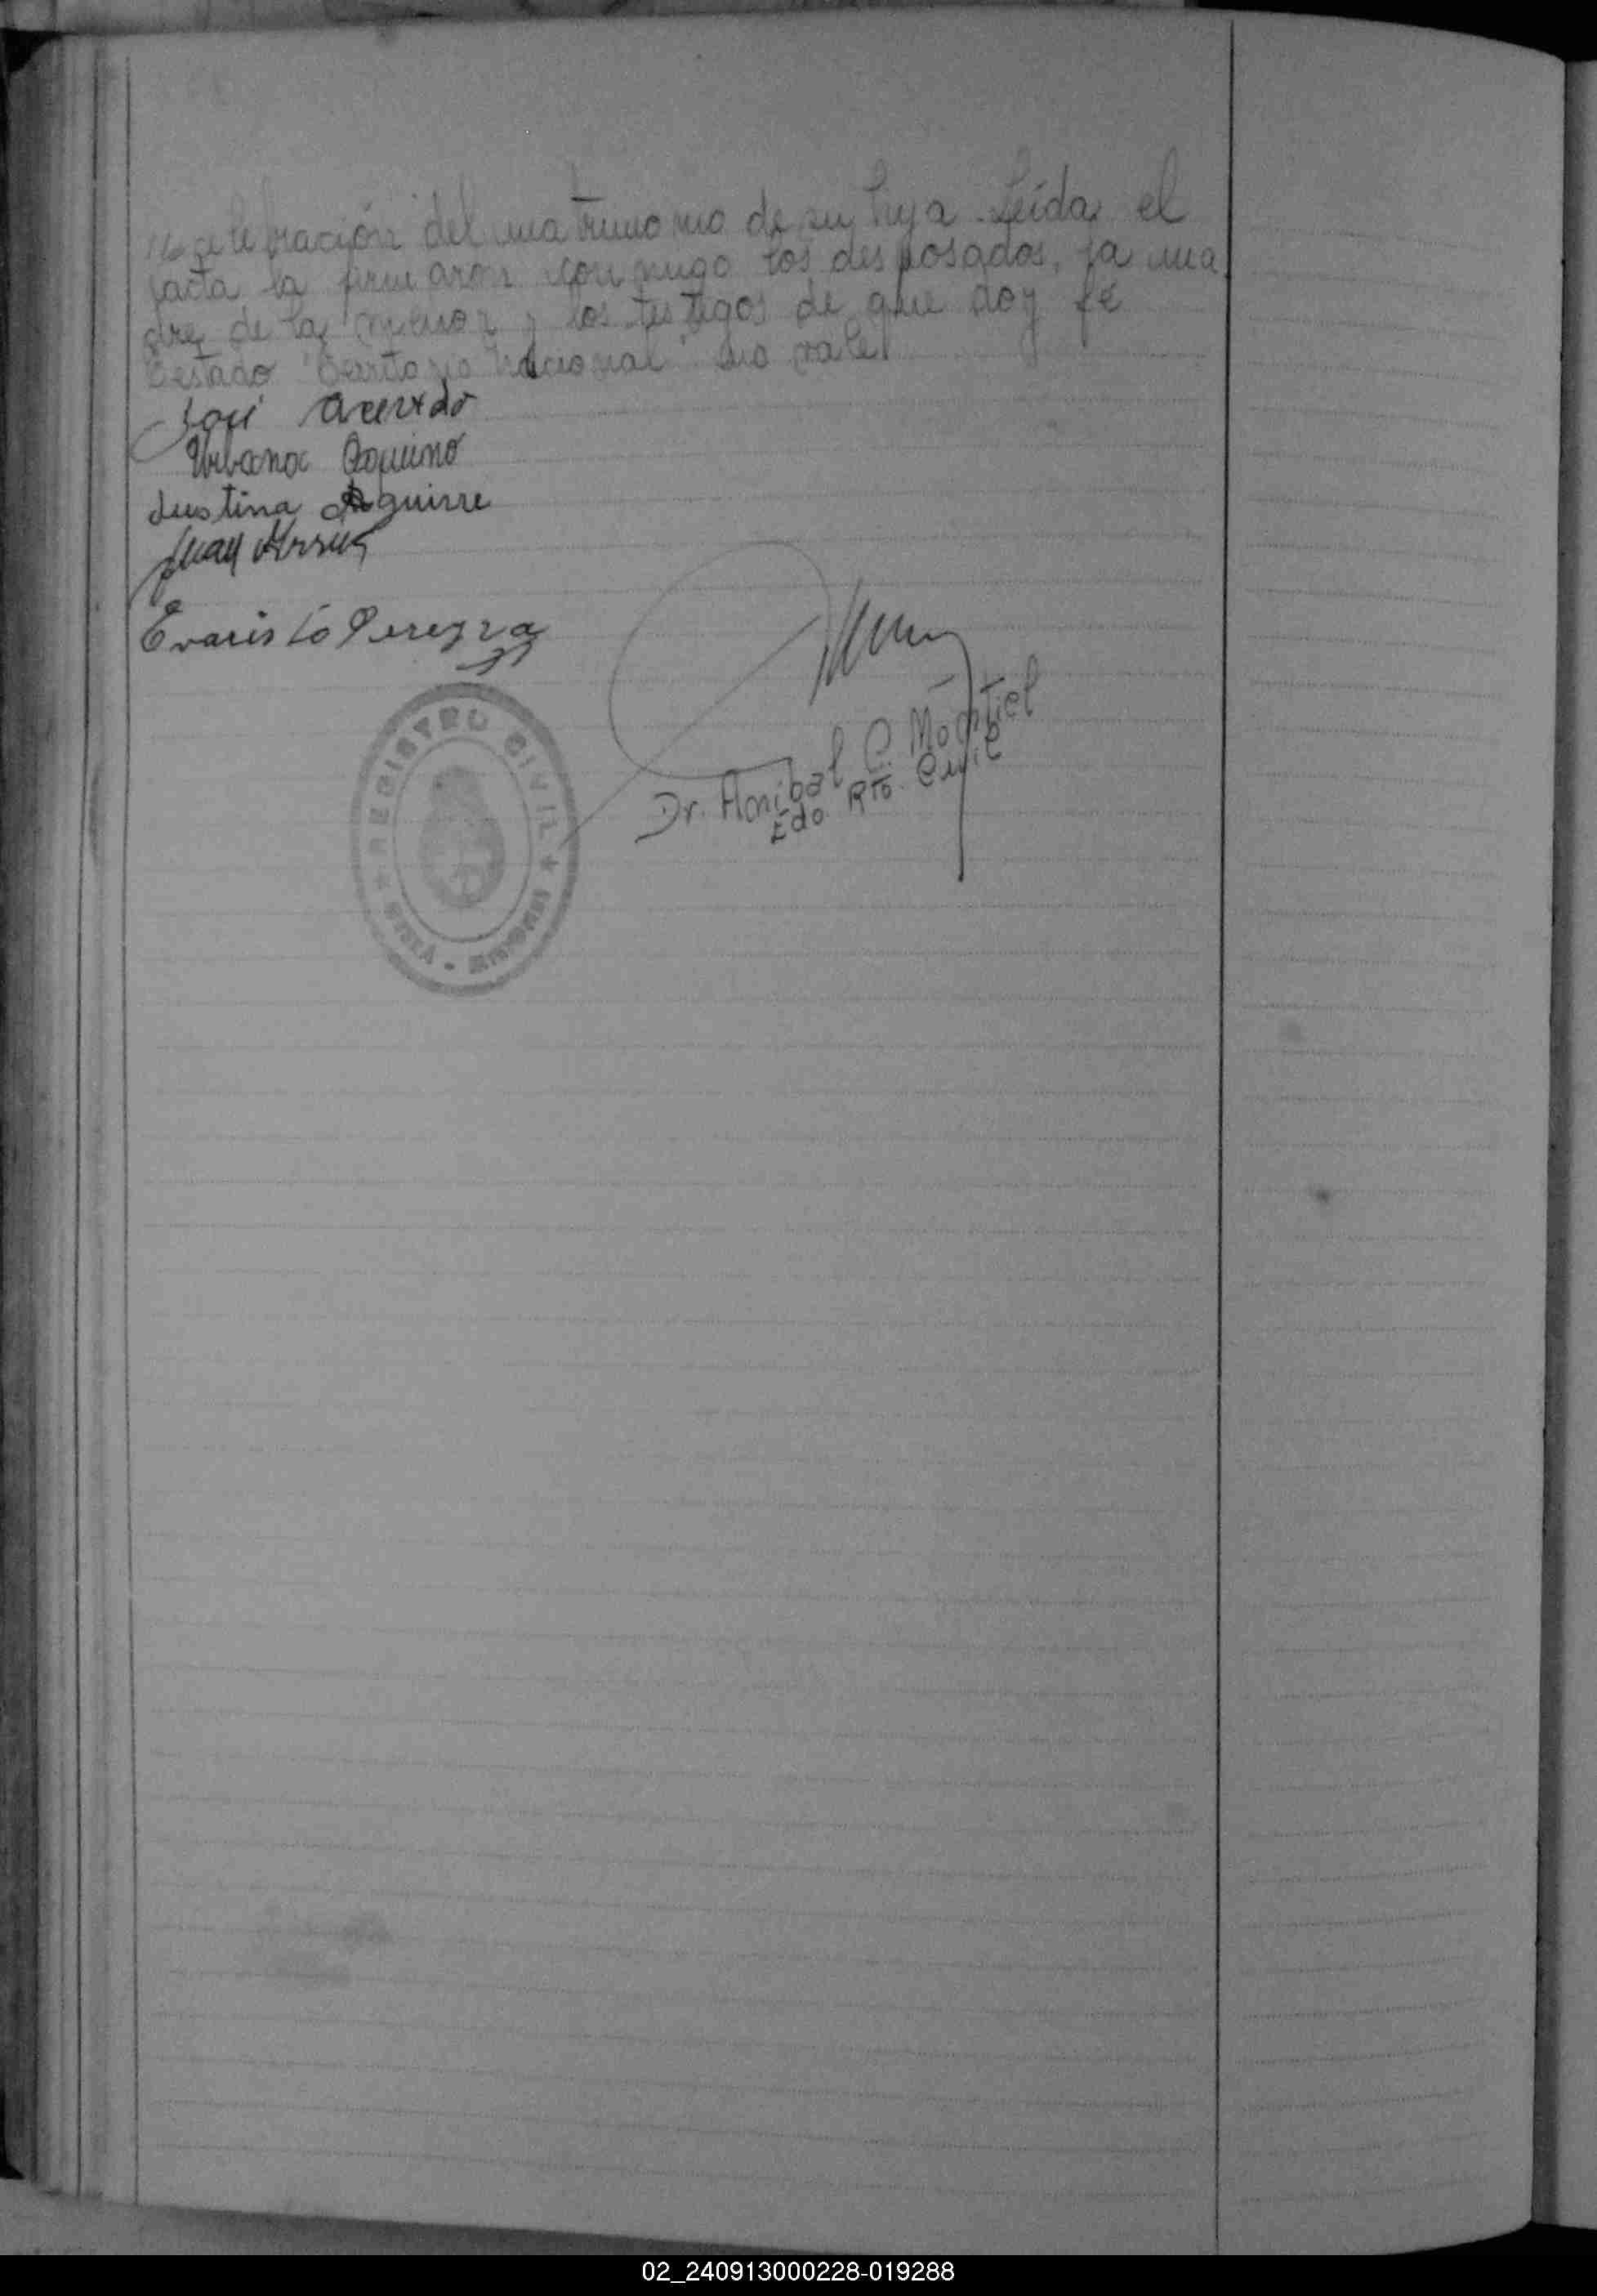 la celebración del matrimonio de su hija. Leída el
acta la firmaron conmigo los desposados, la ma
dre de la menor y los testigos de que doy fé
Testado "Territorio Nacional" no vale
José Acevedo
Urbana Aquino
Justina Aguirre
Juan
Evaristo Pereyra
Dr. Anibal C. Montiel
Edo. Rto. Civil
REGISTRO CIVIL
MISIONES
02_240913000228-019288